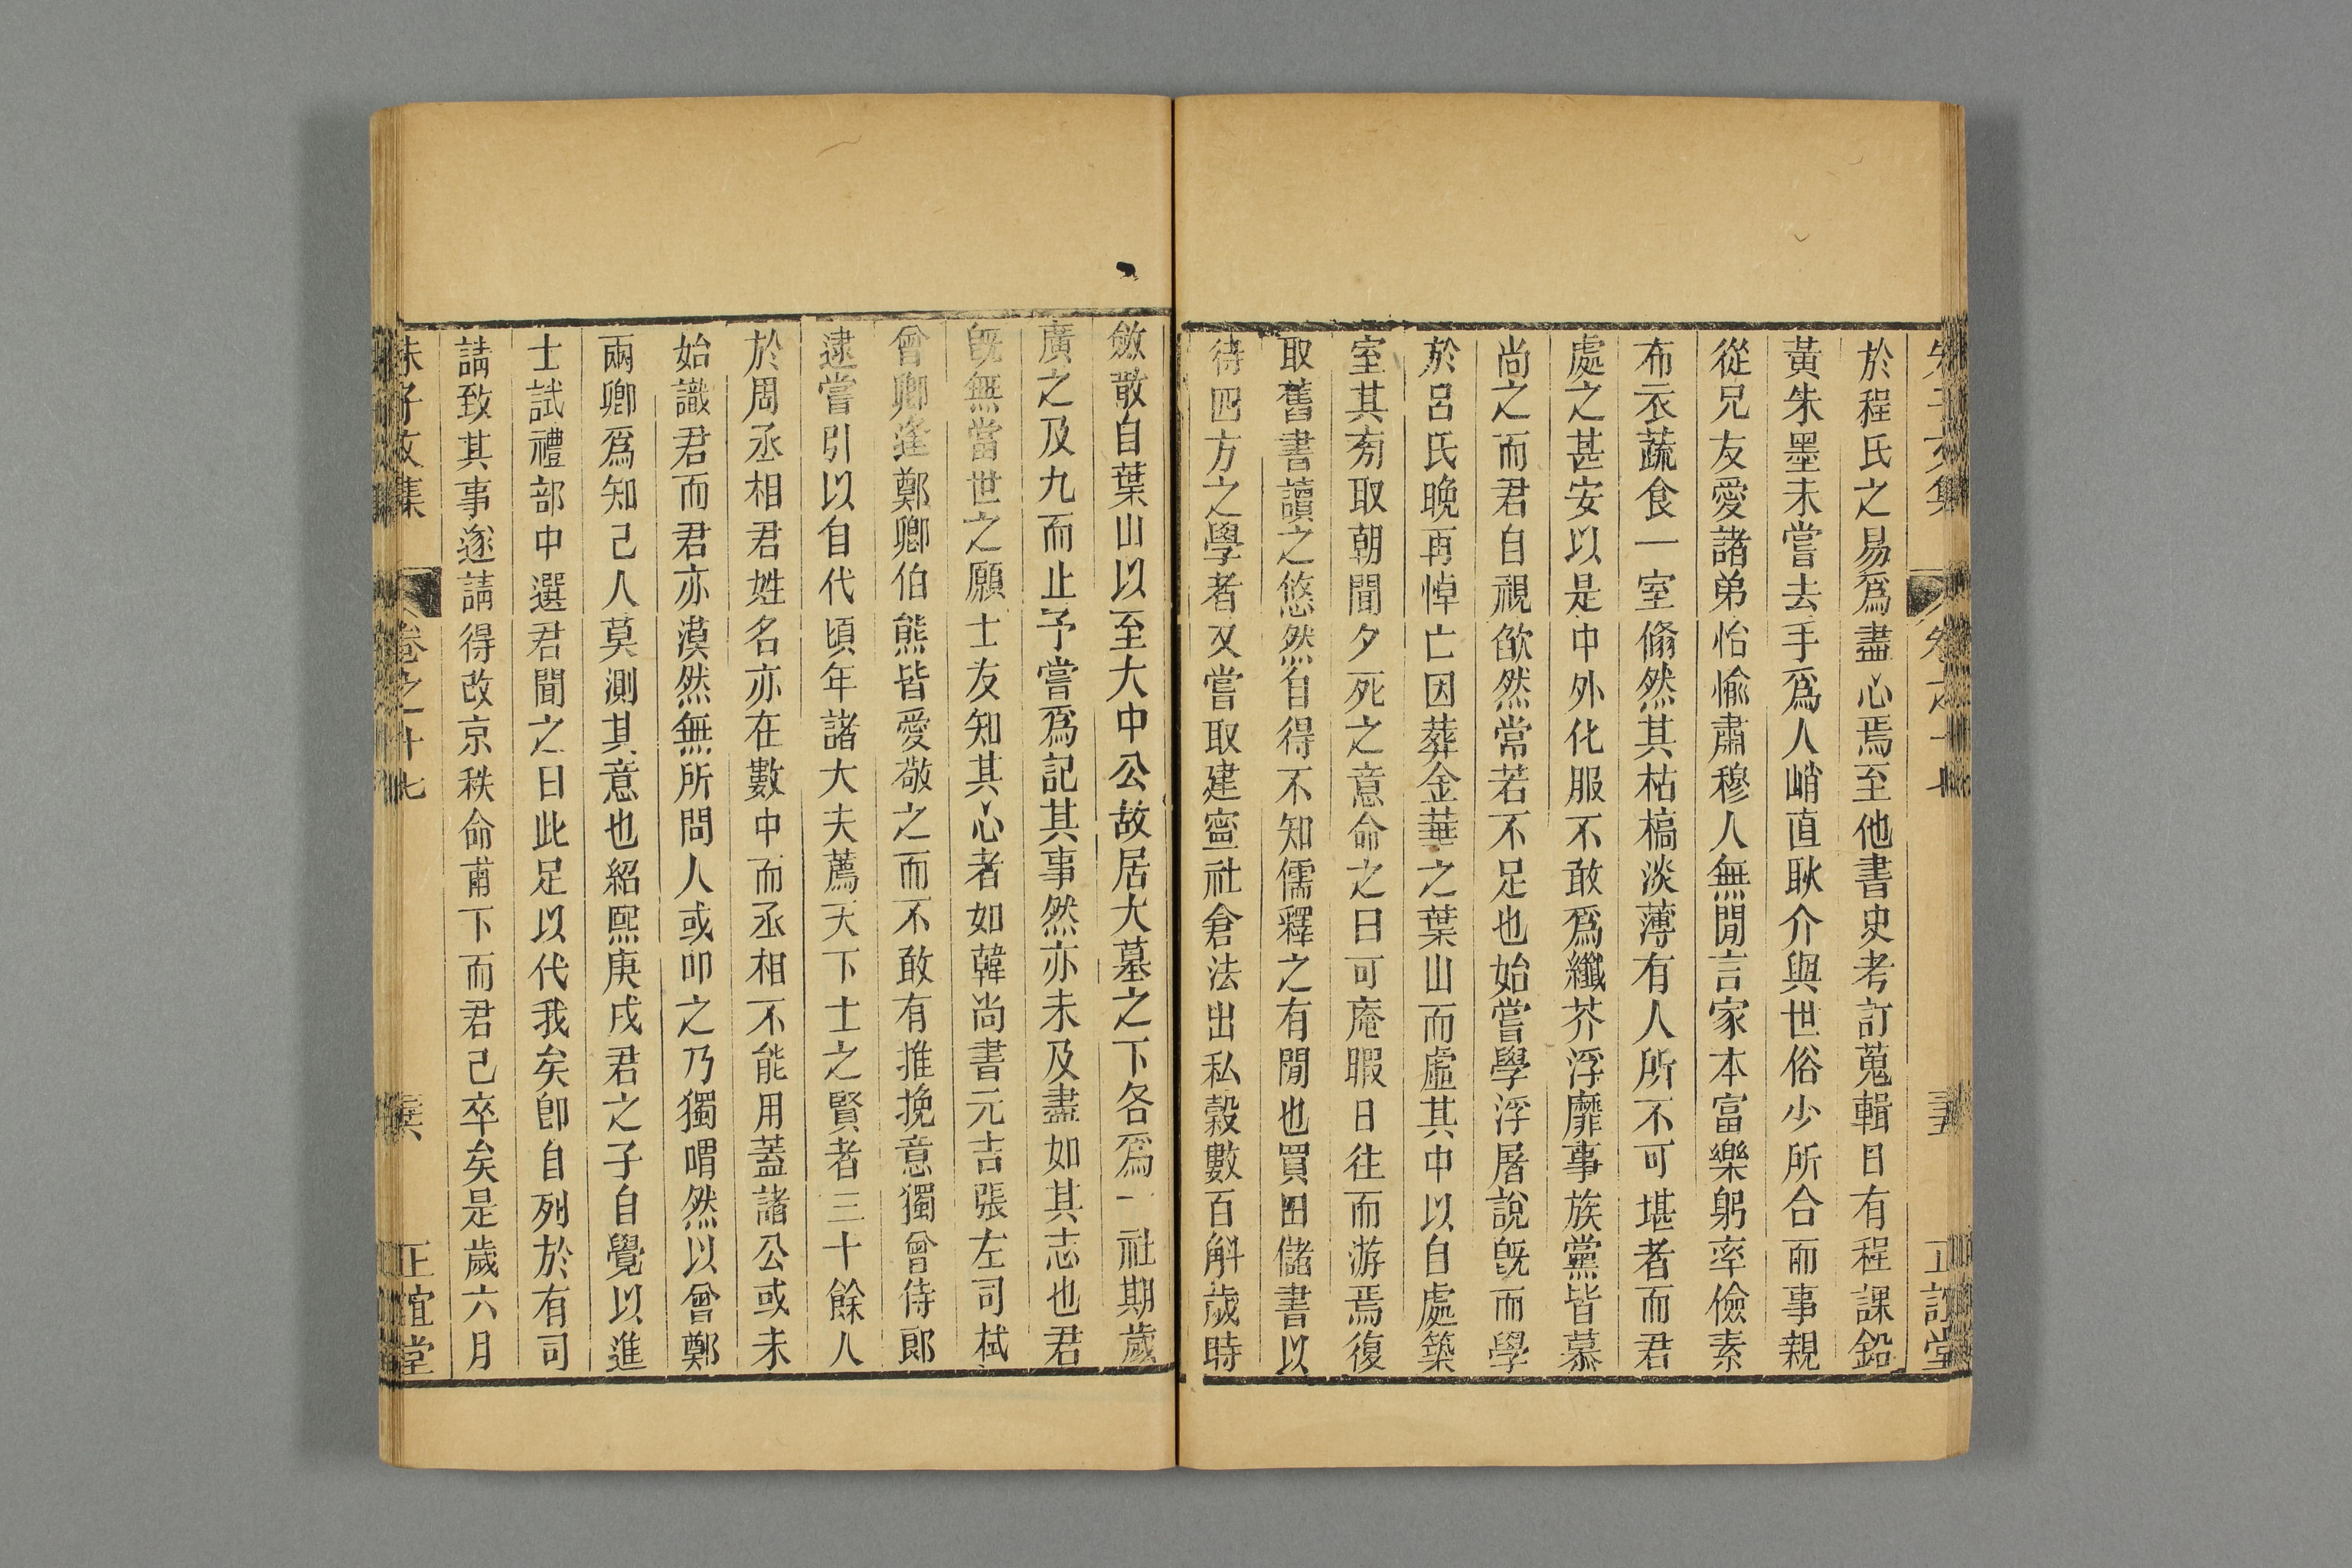 朱子文集 卷之十七 正誼堂
於程氏之易爲盡心焉至他書史考訂蒐輯日有程課鉛
黃朱墨未嘗去手爲人峭直耿介與世俗少所合而事親
從兄友愛諸弟怡愉肅穆人無閒言家本富樂躬率儉素
布衣蔬食一室翛然其枯槁淡薄有人所不可堪者而君
處之甚安以是中外化服不敢爲纖芥浮靡事族黨皆慕
尚之而君自視欿然常若不足也始嘗學浮屠說旣而學
於呂氏晚再悼亡因葬金華之葉山而虛其中以自處築
室其旁取朝聞夕死之意命之曰可庵暇日往而游焉復
取舊書讀之悠然自得不知儒釋之有閒也買田儲書以
待四方之學者又嘗取建寧社倉法出私穀數百斛歲時
斂散自葉山以至大中公故居大墓之下各爲一社期歲
廣之及九而止予嘗爲記其事然亦未及盡如其志也君
旣無當世之願士友知其心者如韓尚書元吉張左司栻
曾卿逢鄭卿伯熊皆愛敬之而不敢有推挽意獨曾侍郎
逮嘗引以自代頃年諸大夫薦天下士之賢者三十餘人
於周丞相君姓名亦在數中而丞相不能用蓋諸公或未
始識君而君亦漠然無所問人或叩之乃獨喟然以曾鄭
兩卿爲知己人莫測其意也紹熙庚戌君之子自覺以進
士試禮部中選君聞之曰此足以代我矣卽自列於有司
請致其事遂請得改京秩命甫下而君已卒矣是歲六月
朱子文集 卷之十七 正誼堂